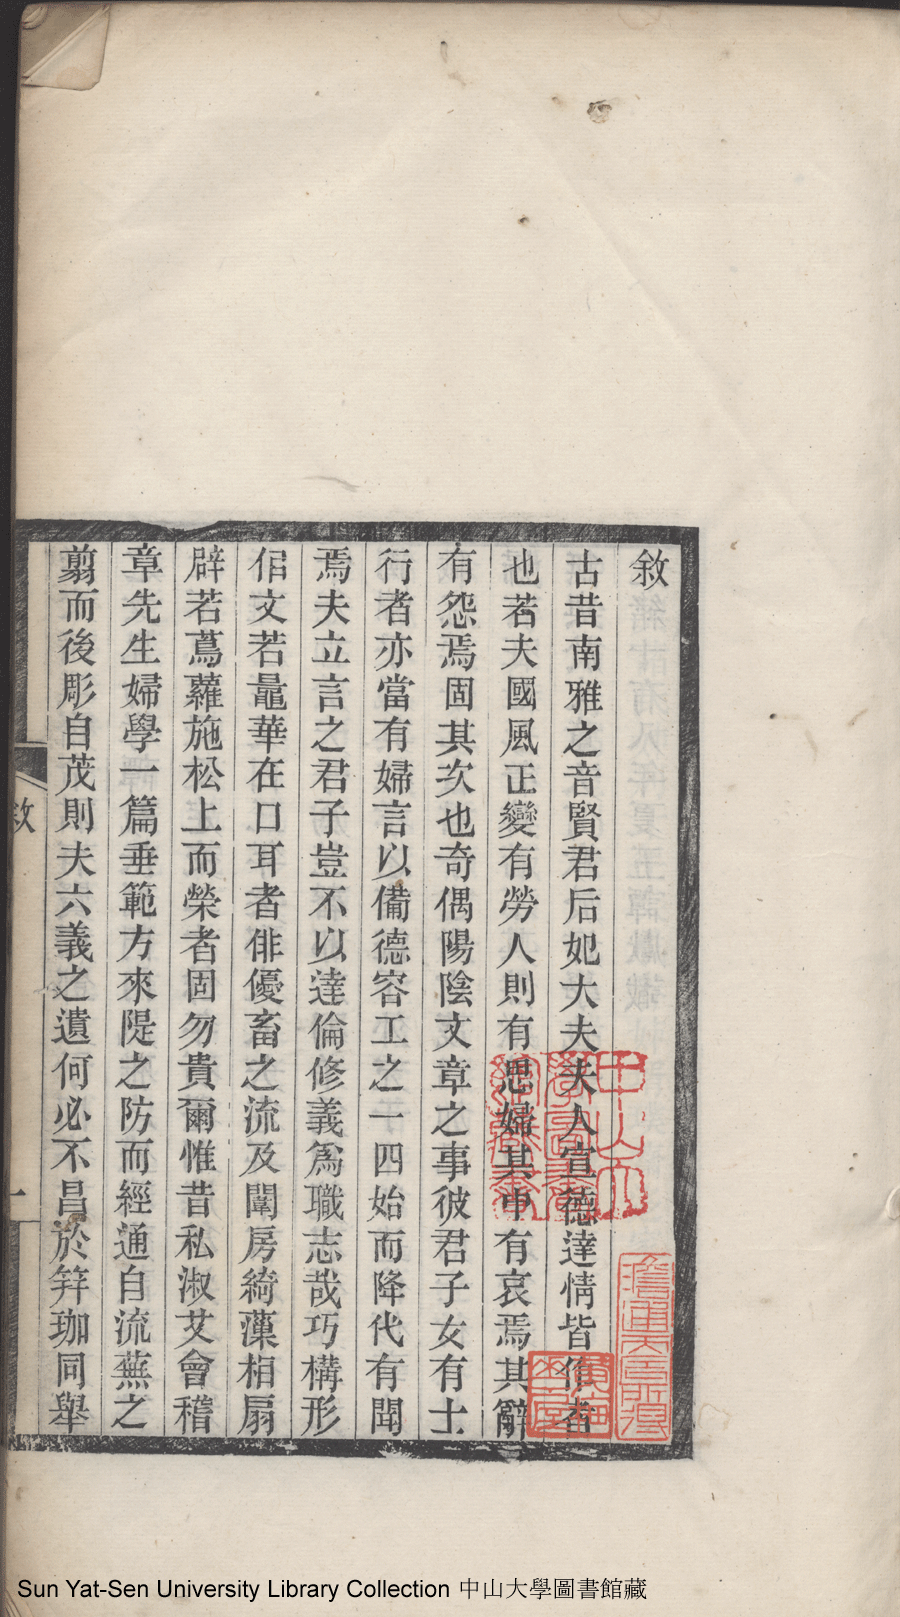 敘
古昔南雅之音賢君后妃大夫夫人宣德達情皆作者
也若夫國風正變有勞人則有思婦其中有哀焉其辭
有怨焉固其次也奇偶陽陰文章之事彼君子女有士
行者亦當有婦言以備德容工之一四始而降代有聞
焉夫立言之君子豈不以達倫修義爲職志哉巧構形
佀文若鼂華在口耳者俳優畜之流及闈房綺藻相扇
辟若蔦蘿施松上而榮者固勿貴爾惟昔私淑艾會稽
章先生婦學一篇垂範方來隄之防而經通自流蕪之
翦而後彫自茂則夫六義之遺何必不昌於笄珈同舉
敘
一
Sun Yat-Sen University Library Collection 中山大學圖書館藏